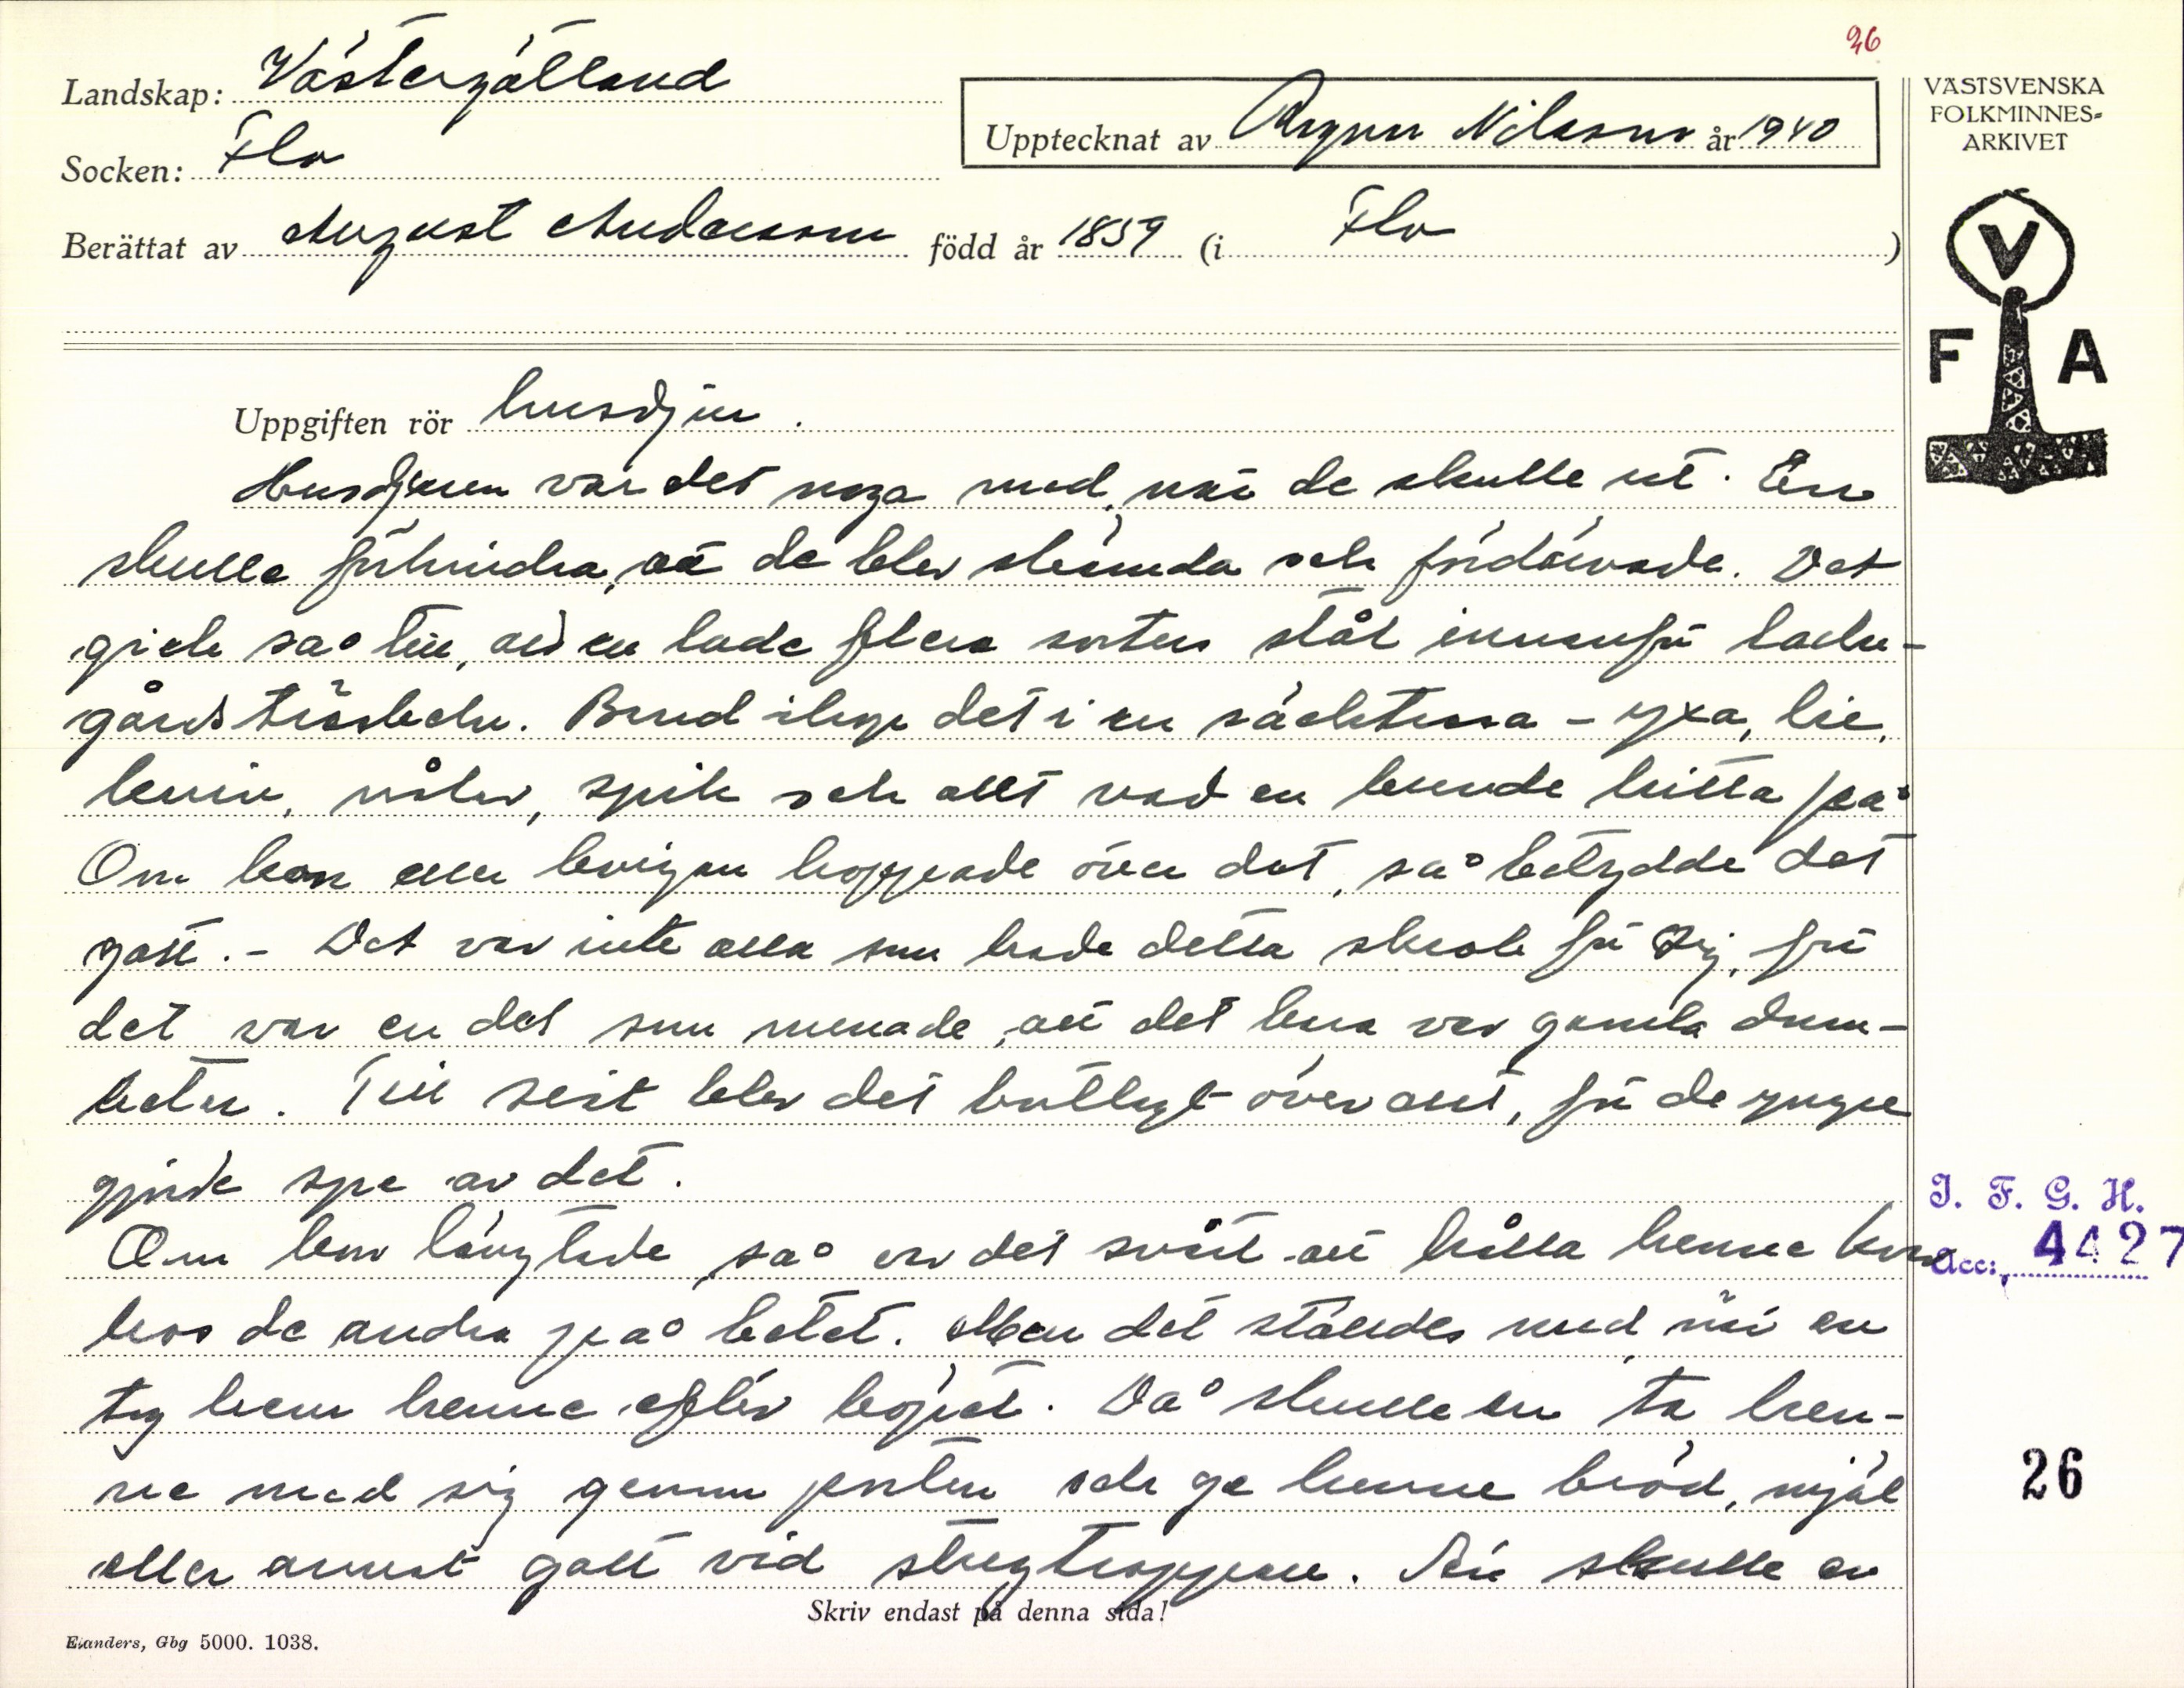 26
Landskap: Västergötland
Socken: Flo
Upptecknat av Ragnar Nilsson år 1940
Berättat av August Andersson född år 1859 (i Flo)
VÄSTSVENSKA
FOLKMINNES-
ARKIVET
V
F A
Uppgiften rör husdjur.
Husdjuren var det noga med, när de skulle ut. En
skulle förhindra, att de blev skämda och fördärvade. Det
gick så till, att en lade flera sorters stål innanför ladu-
gårdströskeln. Brud slog det i en - yxa, lie,
kniv, nålar, spik och allt vad en kunde hitta på
Om kon eller kvigan hoppade över det, så betydde det
gott. - Det var inte alla som hade detta skrock för sig, för
det var en del som menade, att det bara var gamla dum-
heter. Till sist blev det bortlagt överallt, för de yngre
gjorde spe av det.
Om kon längtade, så var det svårt att hålla henne kvar
hos de andra på betet. Men det ställdes med när en
tog hem henne efter köpet. Då skulle en ta hen-
ne med sig genom porten och ge henne bröd, mjöl
eller annat gott vid stugtrappan. Sen skulle en
Skriv endast på denna sida!
Elanders, Gbg 5000. 1038.
I. F. G. H.
Acc: 4427
26